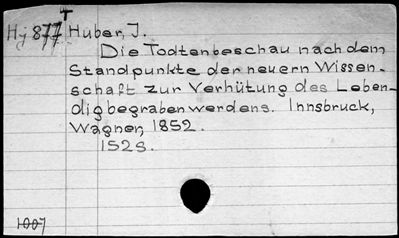 Hj 877 Huber, J.
Die Todtenbeschau nach dem
Standpunkte der neuern Wissen-
schaft zur Verhütung des Leben-
digbegrabenwerdens. Innsbruck,
Wagner, 1852.
152S.
1007